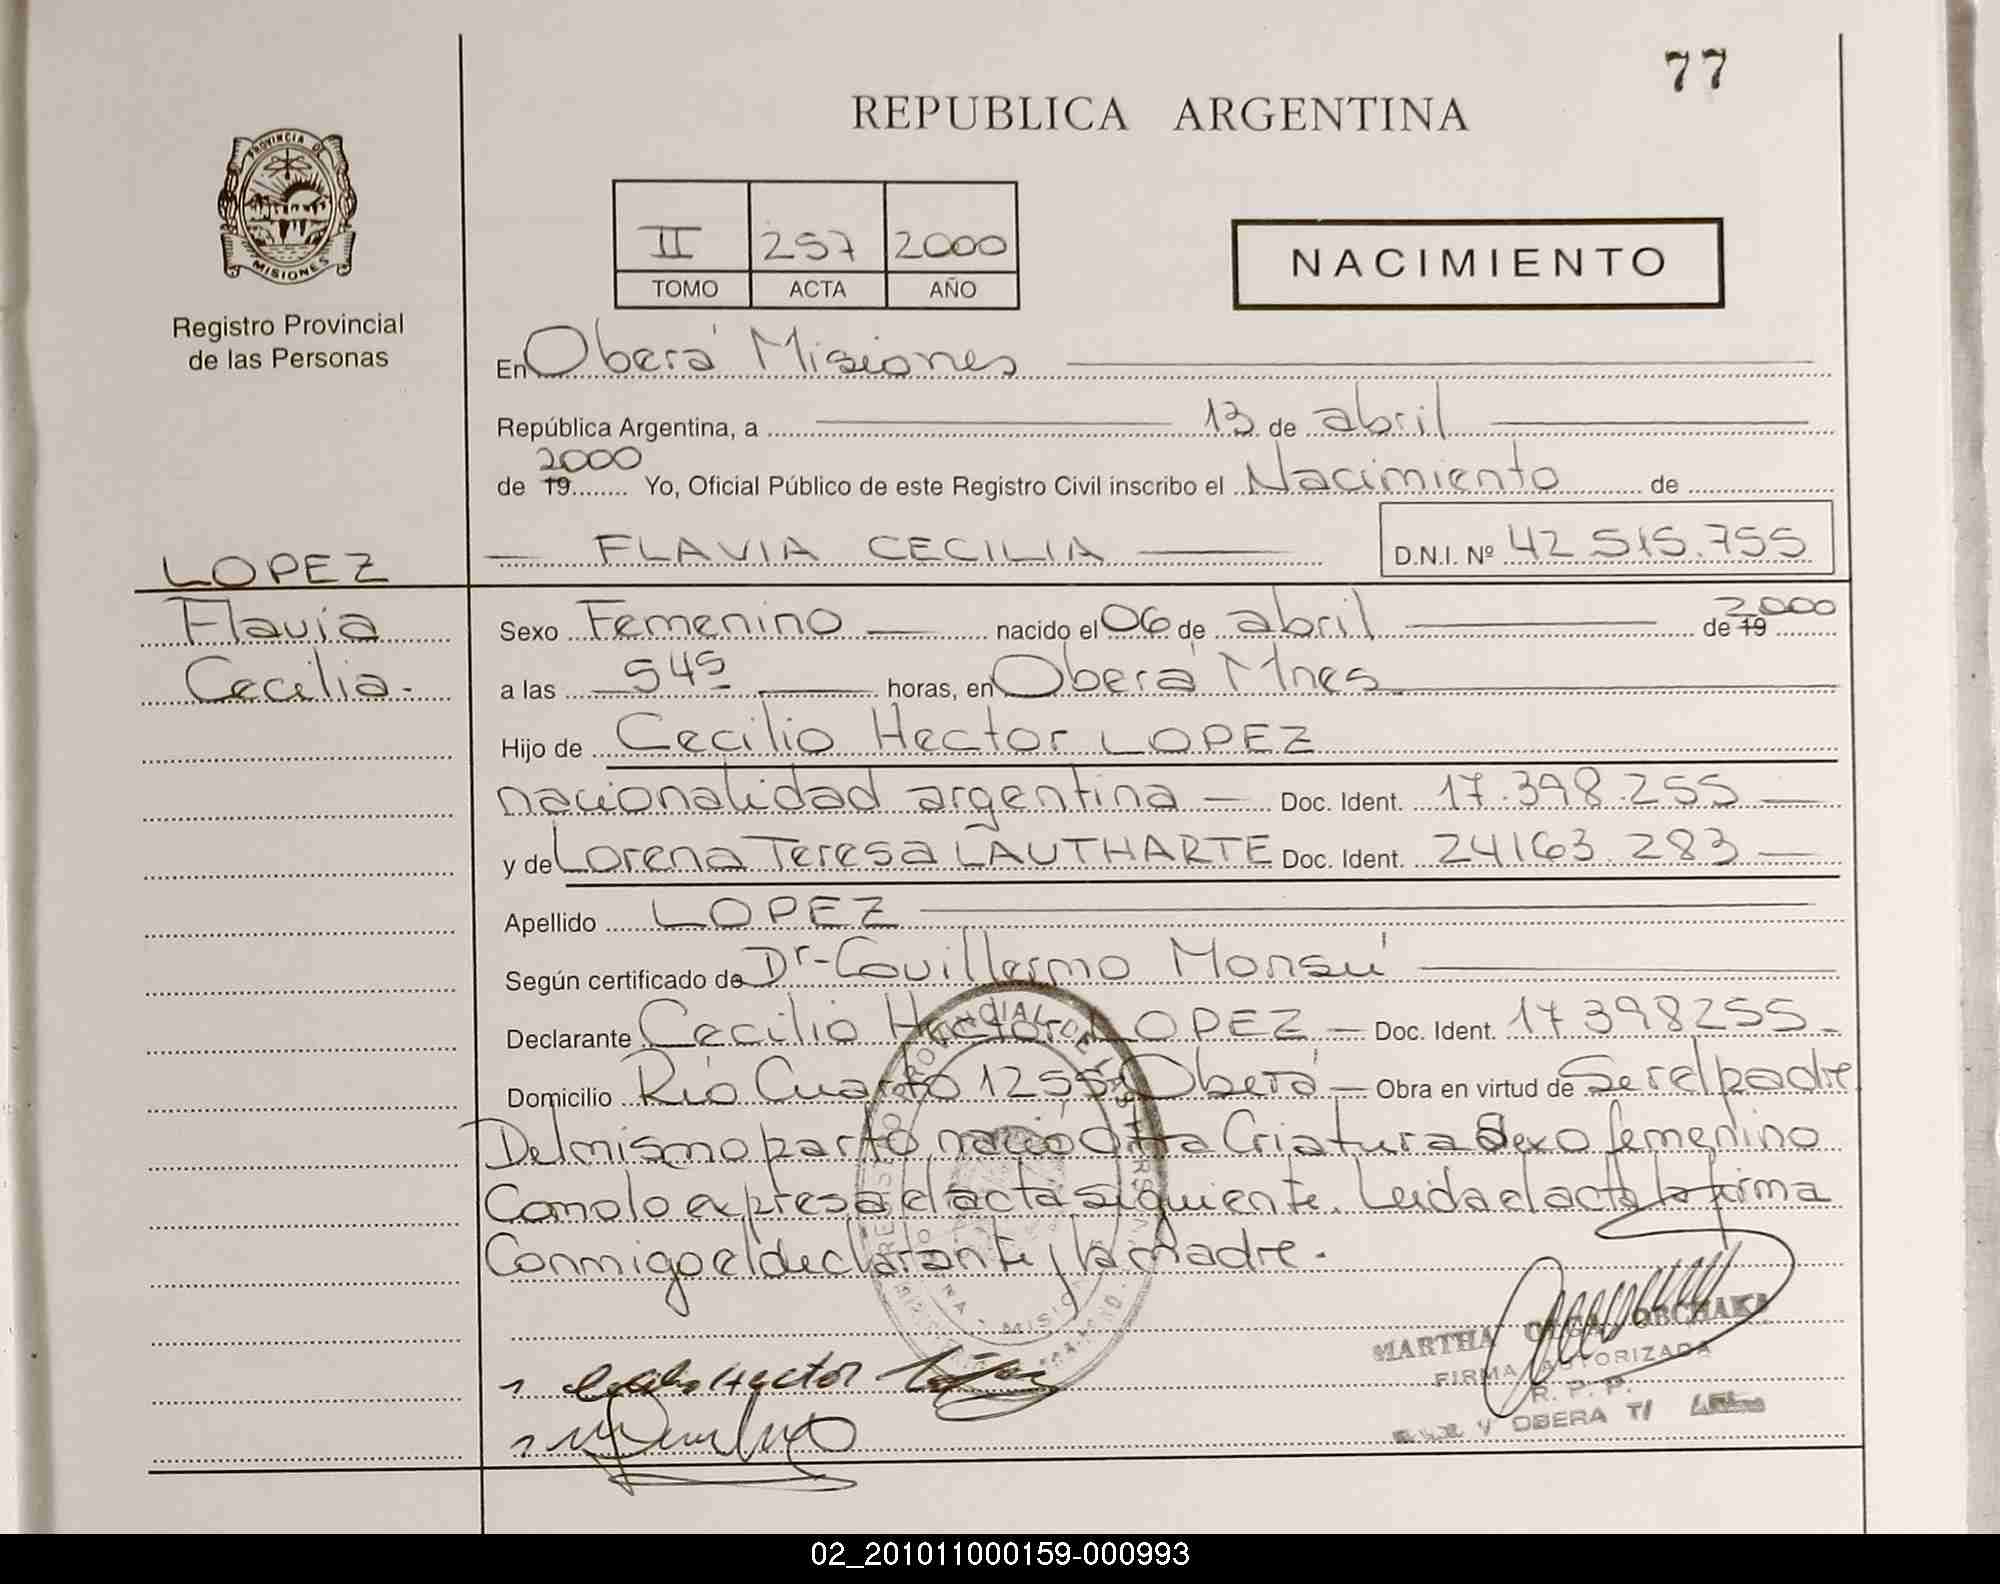 77
REPUBLICA ARGENTINA
PROVINCIA DE
MISIONES
Registro Provincial
de las Personas
II 257 2000
TOMO ACTA AÑO
NACIMIENTO
En Oberá Misiones
República Argentina, a 13 de abril
2000
de 19 Yo, Oficial Público de este Registro Civil inscribo el Nacimiento de
FLAVIA CECILIA D.N.I. Nº 42.515.755
LOPEZ
Flavia
Cecilia.
2000
Sexo Femenino nacido el 06 de abril de 19
a las 5 45 horas, en Oberá Mnes
Hijo de Cecilio Hector LOPEZ
nacionalidad argentina Doc. Ident. 17.398.255
y de Lorena Teresa LAUTHARTE Doc. Ident. 24163.283
Apellido LOPEZ
Según certificado de Dr. Guillermo Monsú
Declarante Cecilio Hector LOPEZ Doc. Ident. 17398255
Domicilio Río Cuarto 1255 Oberá Obra en virtud de Ser el padre
Del mismo parto nació otra Criatura Sexo femenino
Como lo expresa el acta siguiente. Leida el acta la firma
Conmigo el declarante y la madre.
Hector López
MARTHA OLGA ORCHAKA
FIRMA AUTORIZADA
R. P. P.
OBERA
02_201011000159-000993